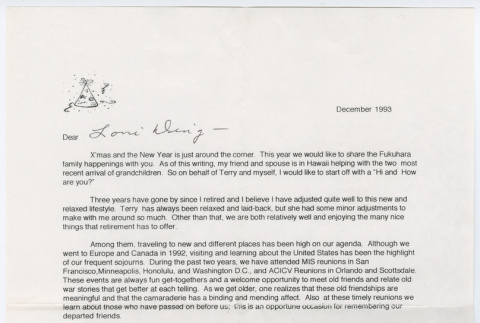 December 1993
Dear Loni Ding —
X'mas and the New Year is just around the corner. This year we would like to share the Fukuhara
family happenings with you. As of this writing, my friend and spouse is in Hawaii helping with the two most
recent arrival of grandchildren. So on behalf of Terry and myself, I would like to start off with a "Hi and How
are you?"
Three years have gone by since I retired and I believe I have adjusted quite well to this new and
relaxed lifestyle. Terry has always been relaxed and laid-back, but she had some minor adjustments to
make with me around so much. Other than that, we are both relatively well and enjoying the many nice
things that retirement has to offer.
Among them, traveling to new and different places has been high on our agenda. Although we
went to Europe and Canada in 1992, visiting and learning about the United States has been the highlight
of our frequent sojourns. During the past two years, we have attended MIS reunions in San
Francisco,Minneapolis, Honolulu, and Washington D.C., and ACICV Reunions in Orlando and Scottsdale.
These events are always fun get-togethers and a welcome opportunity to meet old friends and relate old
war stories that get better at each telling. As we get older, one realizes that these old friendships are
meaningful and that the camaraderie has a binding and mending affect. Also at these timely reunions we
learn about those who have passed on before us; this is an opportune occasion for remembering our
departed friends.